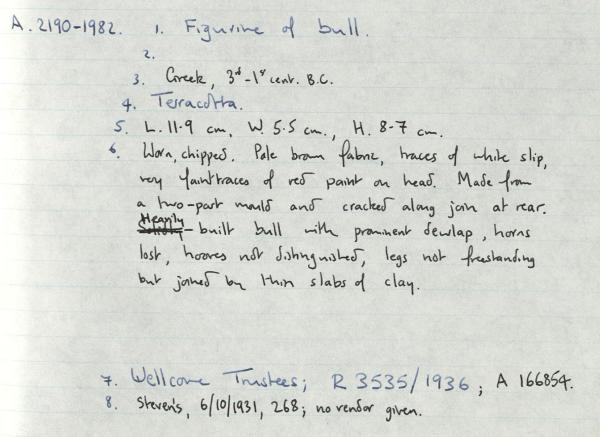 A. 2190-1982. 1. Figurine of bull.
2.
3. Greek, 3rd-1st cent. B.C.
4. Terracotta.
5. L. 11.9 cm, W. 5.5 cm., H. 8.7 cm.
6. Worn, chipped. Pale brown fabric, traces of white slip,
very faint traces of red paint on head. Made from
a two-part mould and cracked along join at rear.
Heavily-built bull with prominent dewlap, horns
lost, hooves not distinguished, legs not freestanding
but joined by thin slabs of clay.
7. Wellcome Trustees; R 3535/1936; A 166854.
8. Steven's, 6/10/1931, 268; no vendor given.